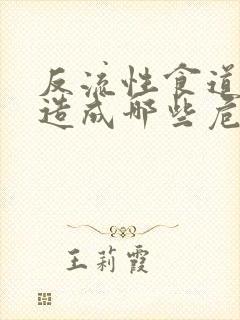 反流性食道
造成哪些危
王莉霞